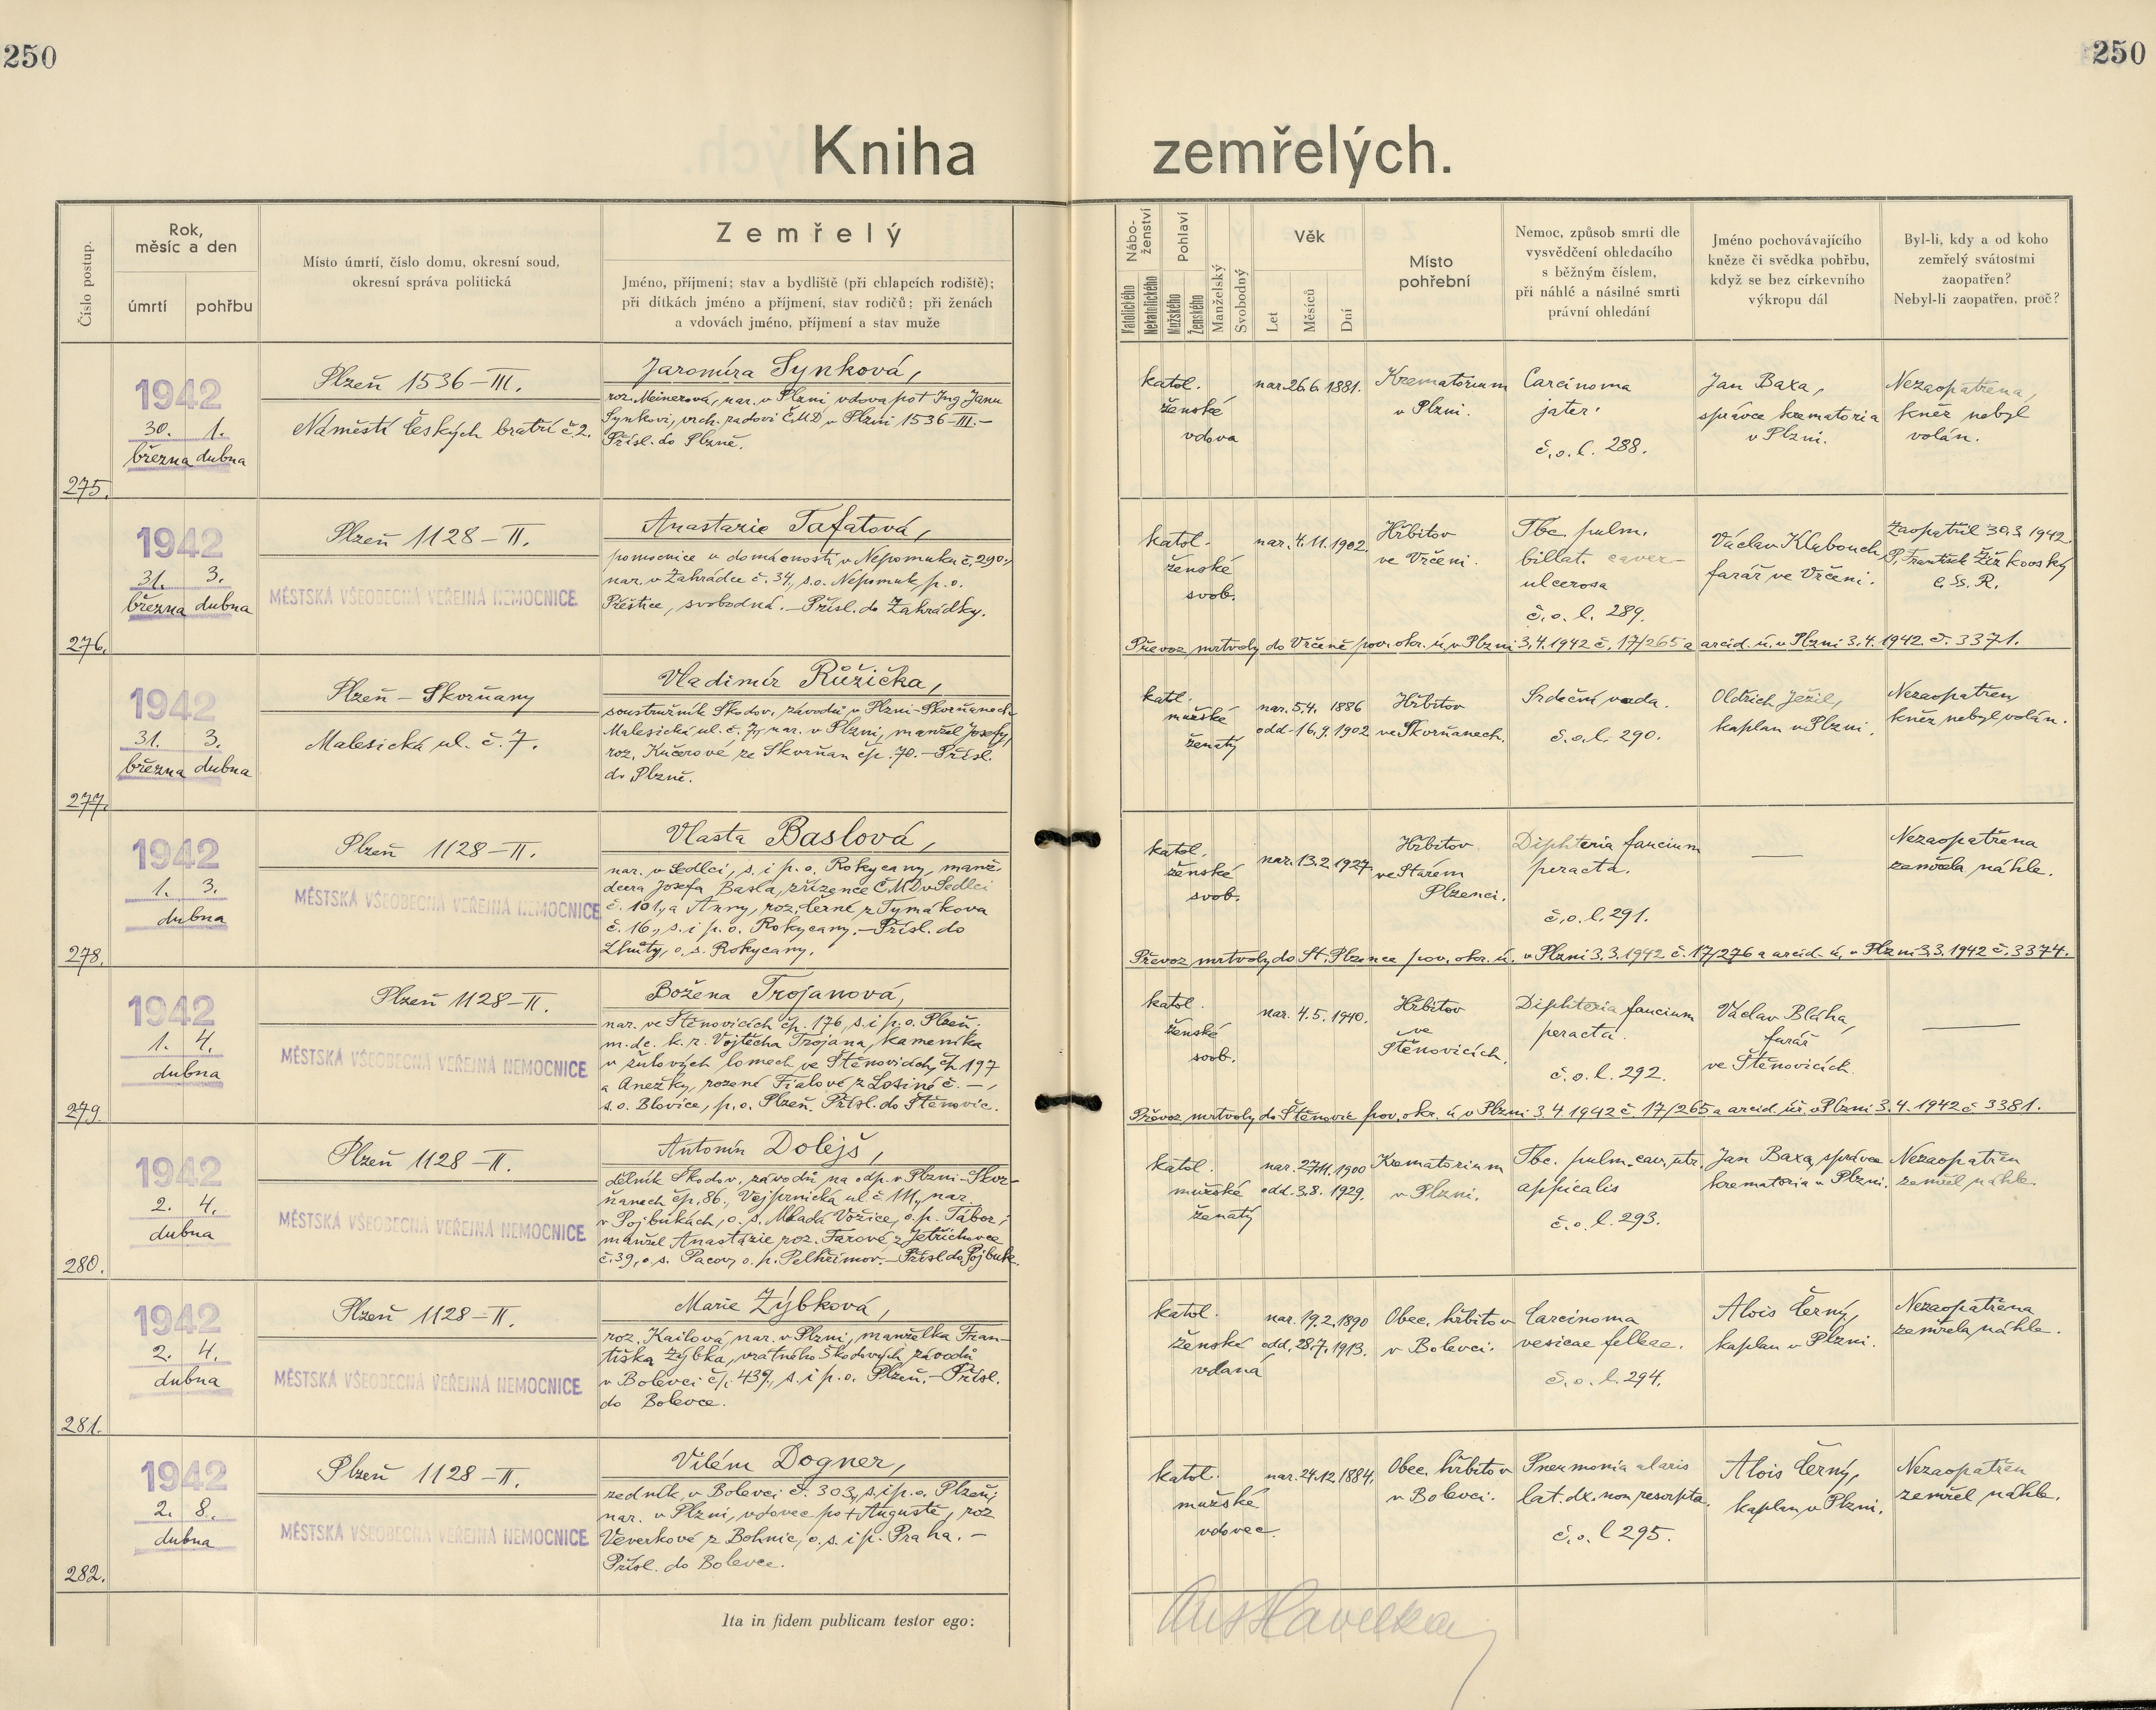 250
250
Kniha zemřelých.
Číslo postup.
Rok,
měsíc a den
úmrtí
pohřbu
Místo úmrtí, číslo domu, okresní soud,
okresní správa politická
Zemřelý
Jméno, příjmení; stav a bydliště (při chlapcích rodiště);
při dítkách jméno a příjmení, stav rodičů; při ženách
a vdovách jméno, příjmení a stav muže
Nábo-
ženství
Katolického
Nekatolického
Pohlaví
Mužského
Ženského
Manželský
Svobodný
Věk
Let
Měsíců
Dní
Místo
pohřební
Nemoc, způsob smrti dle
vysvědčení ohledacího
s běžným číslem,
při náhlé a násilné smrti
právní ohledání
Jméno pochovávajícího
kněze či svědka pohřbu,
když se bez církevního
výkropu dál
Byl-li, kdy a od koho
zemřelý svátostmi
zaopatřen?
Nebyl-li zaopatřen, proč?
275.
1942
30. 1.
března dubna
Plzeň 1536-III.
Náměstí Českých bratří č. 2.
Jaromíra Synková,
roz. Meinerová, nar. v Plzni vdova po † Ing Janu
Synkovi, vrch. radovi ČMD v Plzni 1536-III.-
Přísl. do Plzně.
katol.
ženské
vdova
nar. 26.6.1881.
Krematorium
v Plzni.
Carcinoma
jater.
č.o.l. 288.
Jan Baxa,
správce krematoria
v Plzni.
Nezaopatřena,
kněz nebyl
volán.
276.
1942
31. 3.
března dubna
Plzeň 1128-II.
MĚSTSKÁ VŠEOBECNÁ VEŘEJNÁ NEMOCNICE
Anastazie Tafatová,
pomocnice v domácnosti v Nepomuku č. 290.,
nar. v Zahrádce č. 34., s.o. Nepomuk, p.o.
Přeštice, svobodná. - Přísl. do Zahrádky.
katol.
ženské
svob.
nar. 4.11.1902.
Hřbitov
ve Vrčeni.
Tbc. pulm.
billat. caver-
ulcerosa
č.o.l. 289.
Václav Klabouch,
farář ve Vrčeni.
Zaopatřil 30.3.1942.
P. František Žižkovský
C.Ss.R.
Převoz mrtvoly do Vrčeně pov. okr. ú. v Plzni 3.4.1942 č. 17/265 a arcid. ú. v Plzni 3.4.1942 č. 3371.
277.
1942
31. 3.
března dubna
Plzeň - Skvrňany
Malesická ul. č. 7.
Vladimír Růžička,
soustružník Škodov. závodů v Plzni-Skvrňanech
Malesická ul. č. 7, nar. v Plzni, manžel Josefy,
roz. Kučerové ze Skvrňan čp. 70. - Přísl.
do Plzně.
katol.
mužské
ženatý
nar. 5.4. 1886
odd. 16.9.1902
Hřbitov
ve Skvrňanech.
Srdeční vada.
č.o.l. 290.
Oldřich Ježil,
kaplan v Plzni.
Nezaopatřen,
kněz nebyl volán.
278.
1942
1. 3.
dubna
Plzeň 1128-II.
MĚSTSKÁ VŠEOBECNÁ VEŘEJNÁ NEMOCNICE
Vlasta Baslová,
nar. v Sedlci, s. i p.o. Rokycany, manž.
dcera Josefa Basla, zřízence ČMD v Sedlci
č. 101, a Anny, roz. Černé z Tymákova
č. 16., s. i p.o. Rokycany. - Přísl. do
Lhůty, o.s. Rokycany.
katol.
ženské
svob.
nar. 13.2.1927.
Hřbitov
ve Starém
Plzenci.
Diphteria faucium
peracta.
č.o.l. 291.
—
Nezaopatřena
zemřela náhle.
Převoz mrtvoly do St. Plzence pov. okr. ú. v Plzni 3.3.1942 č. 17/276 a arcid. ú. v Plzni 3.3.1942 č. 3374.
279.
1942
1. 4.
dubna
Plzeň 1128-II.
MĚSTSKÁ VŠEOBECNÁ VEŘEJNÁ NEMOCNICE
Božena Trojanová,
nar. ve Štěnovicích čp. 176, s. i p.o. Plzeň.
m. dc. k. r. Vojtěcha Trojana, kameníka
v žulových lomech ve Štěnovicích, čp. 197
a Anežky, rozené Fialové z Losiné č. -,
s.o. Blovice, p.o. Plzeň. Přísl. do Štěnovic.
katol.
ženské
svob.
nar. 4.5.1940.
Hřbitov
ve
Štěnovicích.
Diphteria faucium
peracta.
č.o.l. 292.
Václav Bláha,
farář
ve Štěnovicích.
—
Převoz mrtvoly do Štěnovic pov. okr. ú. v Plzni 3.4.1942 č. 17/265 a arcid. úř. v Plzni 3.4.1942 č 3381.
280.
1942
2. 4.
dubna
Plzeň 1128-II.
MĚSTSKÁ VŠEOBECNÁ VEŘEJNÁ NEMOCNICE
Antonín Dolejš,
dělník Škodov. závodů na odp. v Plzni-Skvr-
ňanech čp. 86., Vejprnická ul. č 111, nar.
v Pojbukách, o.s. Mladá Vožice, o.p. Tábor;
manžel Anastázie roz. Farové z Jetřichovce
č. 39, o.s. Pacov, o.p. Pelhřimov. - Přísl. do Pojbuk.
katol.
mužské
ženatý
nar. 27.11.1900
odd. 3.8. 1929.
Krematorium
v Plzni.
Tbc. pulm. cav. utr.
appicalis
č.o.l. 293.
Jan Baxa, správce
krematoria v Plzni.
Nezaopatřen
zemřel náhle.
281.
1942
2. 4.
dubna
Plzeň 1128-II.
MĚSTSKÁ VŠEOBECNÁ VEŘEJNÁ NEMOCNICE
Marie Zýbková,
roz. Kailová, nar. v Plzni, manželka Fran-
tiška Zýbka, vrátného Škodových závodů
v Bolevci čp. 439, s. i p.o. Plzeň. - Přísl.
do Bolevce.
katol.
ženské
vdaná
nar. 19.2.1890
odd. 28.7.1913.
Obec. hřbitov
v Bolevci.
Carcinoma
vesicae felleae.
č.o.l. 294.
Alois Černý,
kaplan v Plzni.
Nezaopatřena
zemřela náhle.
282.
1942
2. 8.
dubna
Plzeň 1128-II.
MĚSTSKÁ VŠEOBECNÁ VEŘEJNÁ NEMOCNICE
Vilém Dogner,
zedník, v Bolevci č. 303, s. i p.o. Plzeň;
nar. v Plzni, vdovec po † Augustě, roz
Veverkové z Bohnic, o.s. i p. Praha. -
Přísl. do Bolevce.
katol.
mužské
vdovec.
nar. 24.12.1884.
Obec. hřbitov
v Bolevci.
Pneumonia alaris
lat. dx. non resorpta.
č.o.l 295.
Alois Černý,
kaplan v Plzni.
Nezaopatřen
zemřel náhle.
Ita in fidem publicam testor ego: